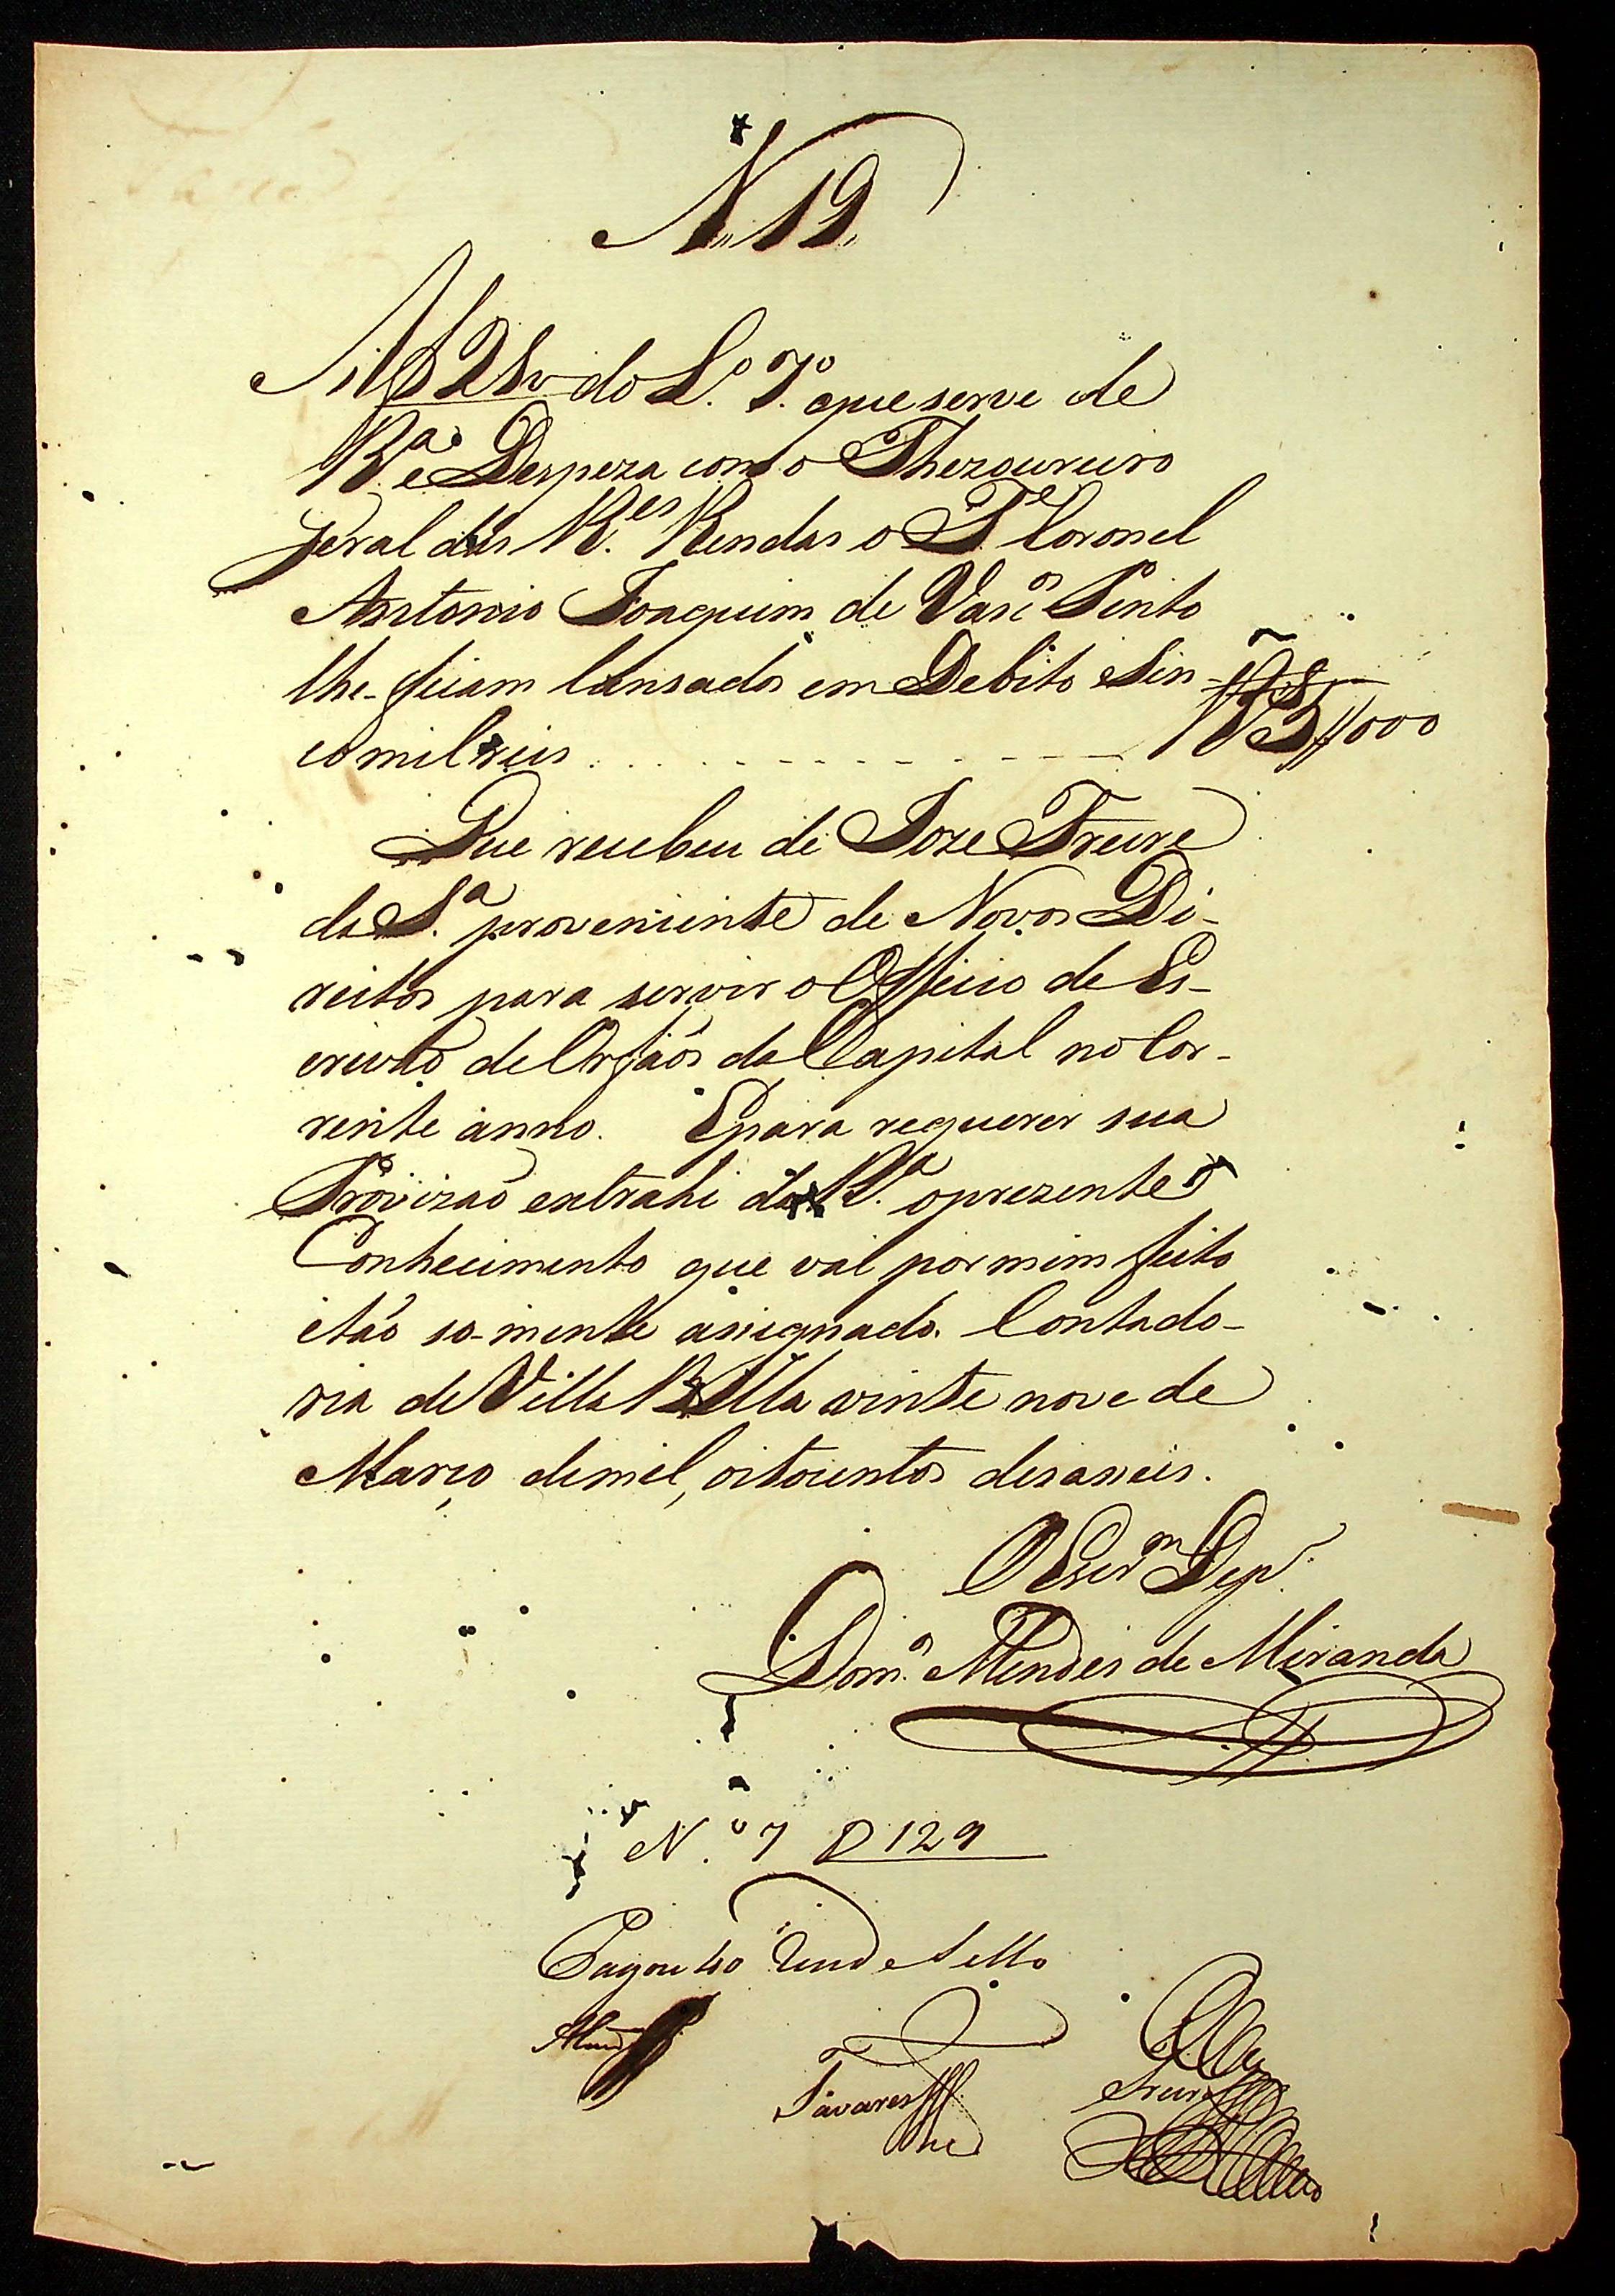 N. 19
Af 28v do L.º 7.º que serve de
R.ª e Despeza com o Thezoureiro
geral das R.es Rendas o T.e Coronel
Antonio Joaquim de Vas.os Pinto
lhe ficam lansados em Debito Sin-
co mil reis . . . . . . . . . . R 5$000
Que recebeu de Joze Freire
da S.ª proveniente de Novos Di-
reitos para servir o Officio de Es-
crivão de Orfãos da Capital no Cor-
rente anno. E para requerer sua
Provizaõ extrahi da R.ª o prezente
Conhecimento que vai por mim feito
e tão so-mente asignado. Contado-
ria de Villa Bella vinte nove de
Março de mil, oitocentos desaseis.
O Escr.m Dep.
Dom.os Mendes de Miranda
N.º 7 D 129
Pagou 40 reis de Sello
Tavares
Freire